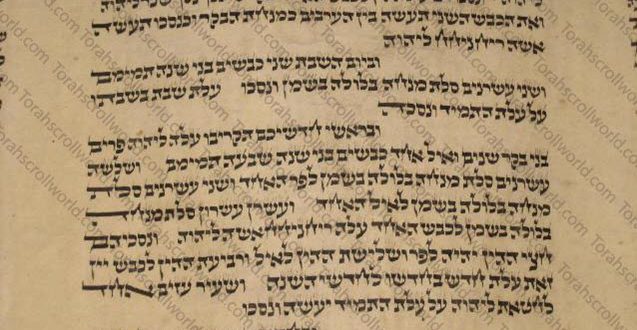 ואת הכבש השני תעשה בין הערבים כמנחת הבקר וכנסכו תעשה
אשה ריח ניחח ליהוה
וביום השבת שני כבשים בני שנה תמימם
ושני עשרנים סלת מנחה בלולה בשמן ונסכו עלת שבת בשבתו
על עלת התמיד ונסכה
ובראשי חדשיכם תקריבו עלה ליהוה פרים
בני בקר שנים ואיל אחד כבשים בני שנה שבעה תמימם ושלשה
עשרנים סלת מנחה בלולה בשמן לפר האחד ושני עשרנים סלת
מנחה בלולה בשמן לאיל האחד ועשרן עשרון סלת מנחה
בלולה בשמן לכבש האחד עלה ריח ניחח אשה ליהוה ונסכיהם
חצי ההין יהיה לפר ושלישת ההין לאיל ורביעת ההין לכבש יין
זאת עלת חדש בחדשו לחדשי השנה ושעיר עזים אחד
לחטאת ליהוה על עלת התמיד יעשה ונסכו
Torahscrollworld.com